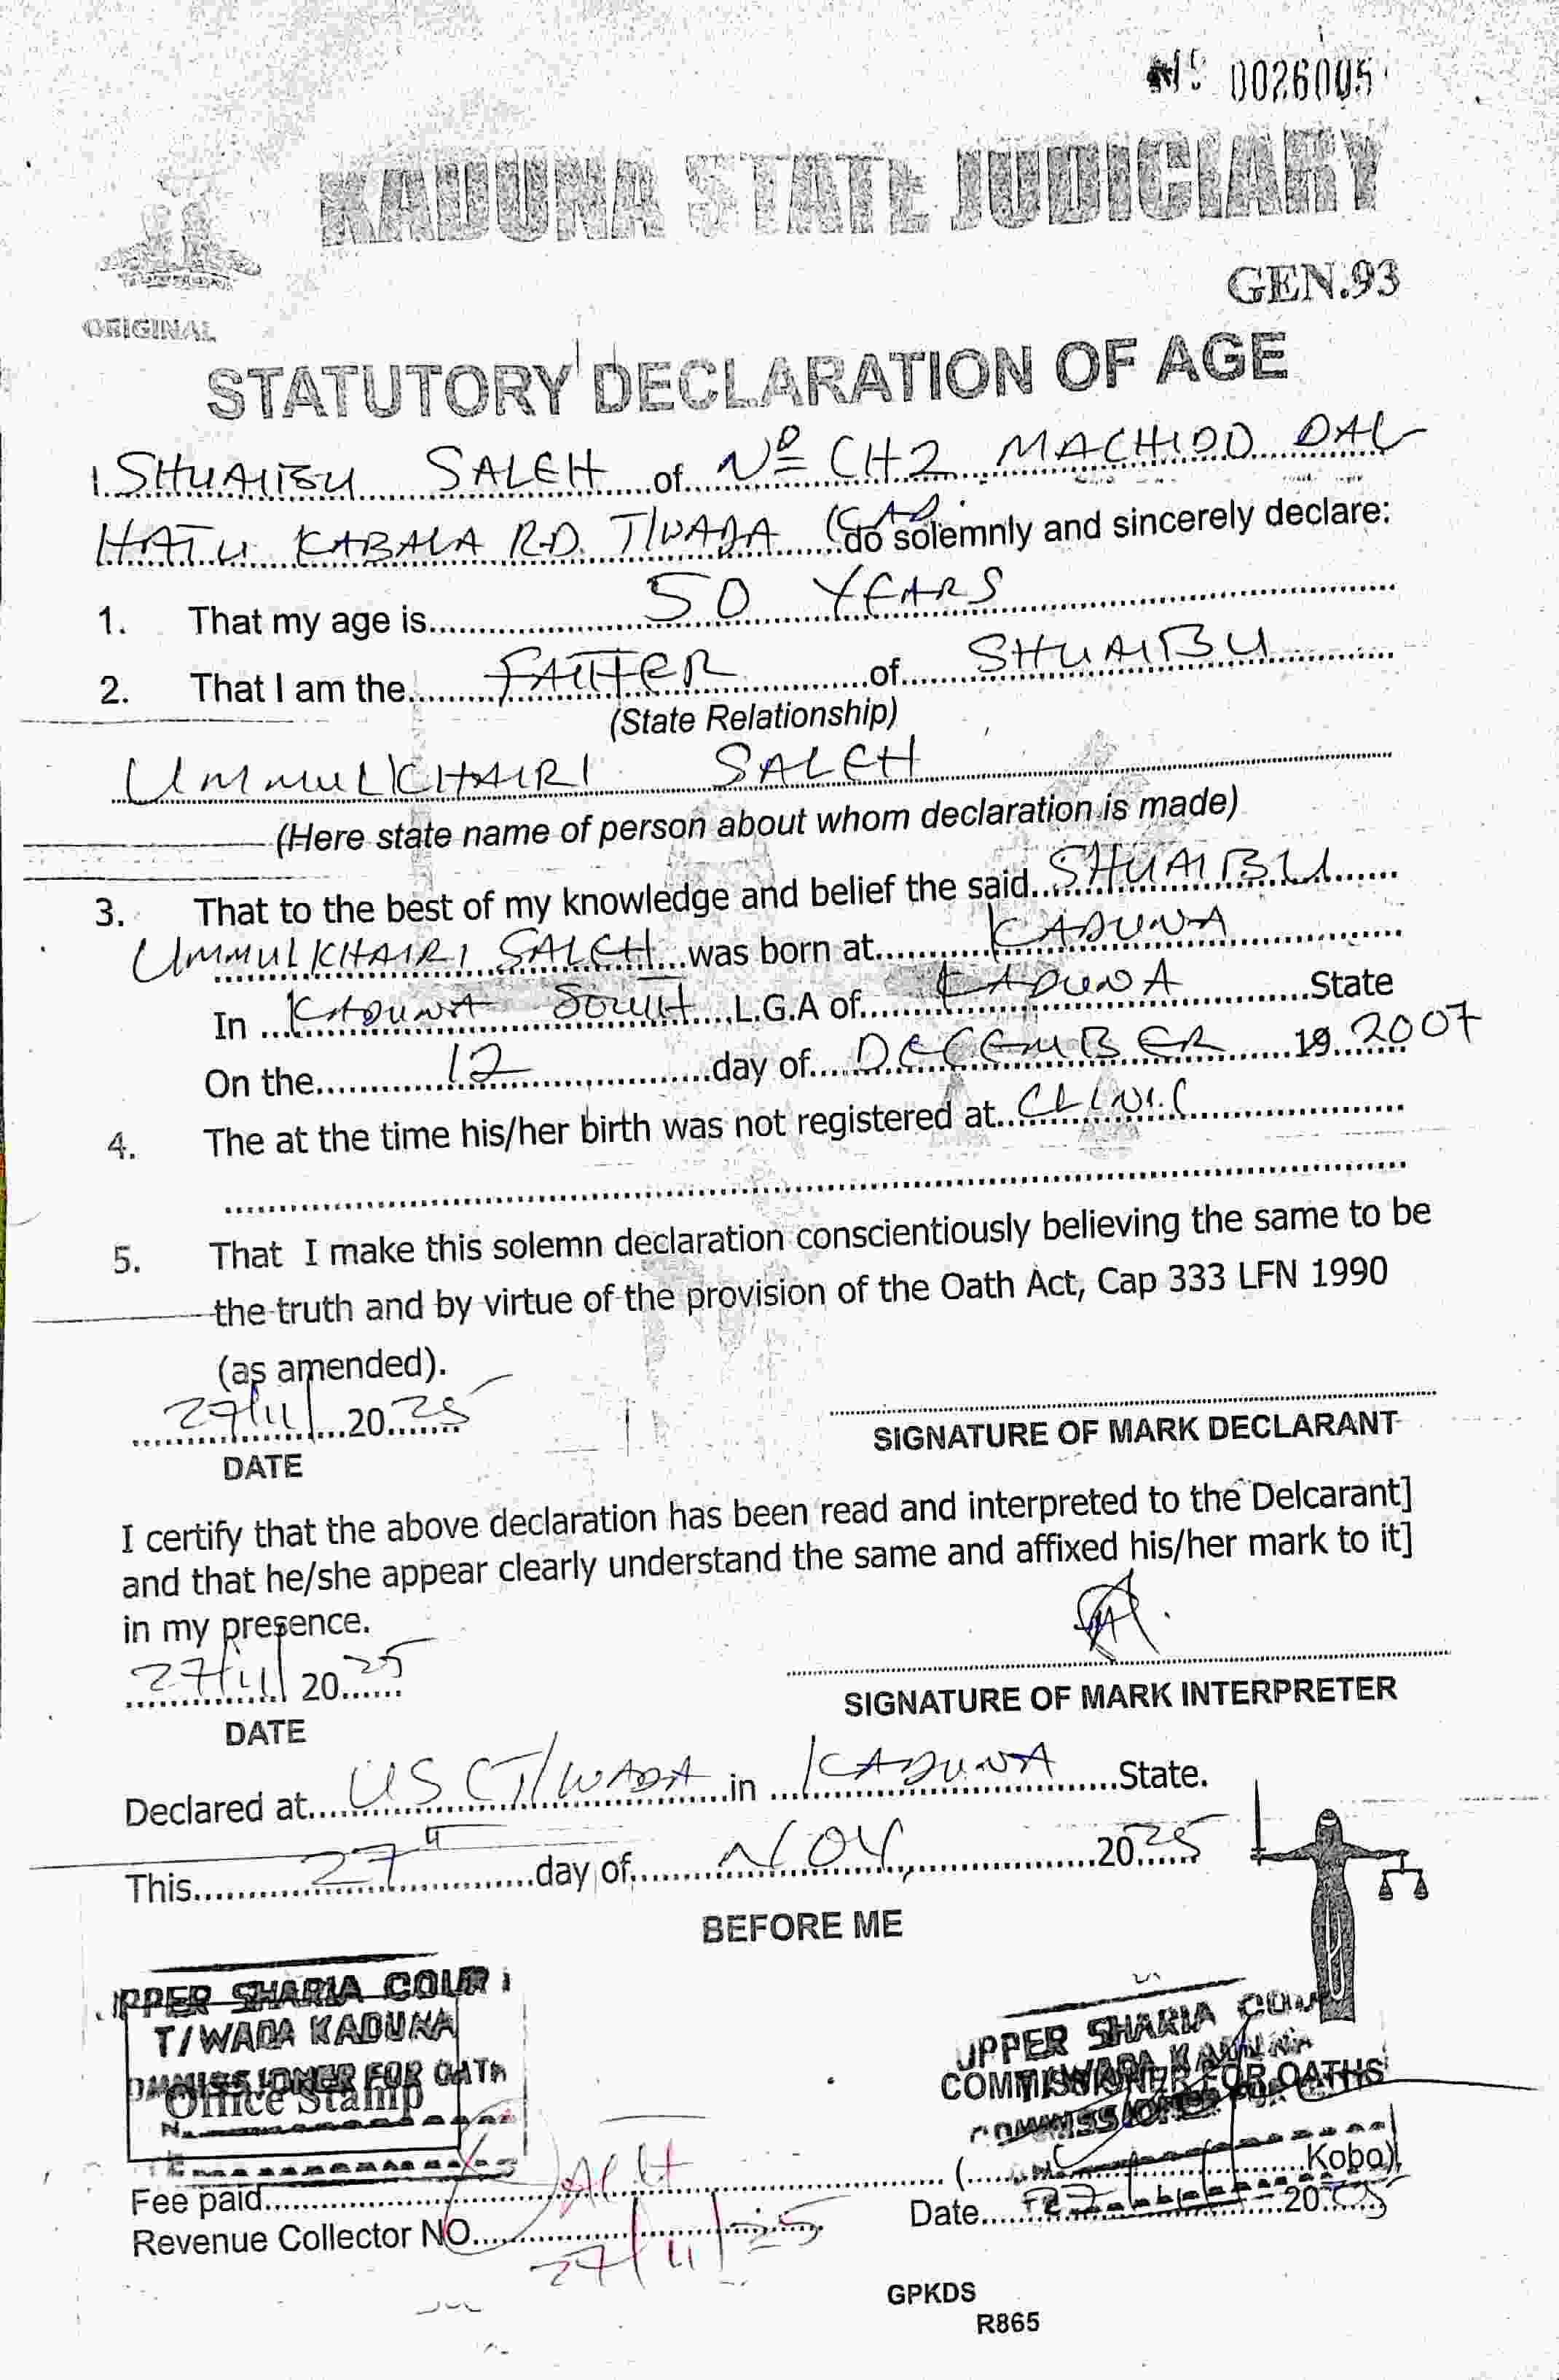 Nº 0026005
KADUNA STATE JUDICIARY
GEN.93
ORIGINAL
STATUTORY DECLARATION OF AGE
I. SHUAIBU SALEH of Nº CH2 MACHIDO DAL
HATU KABALA RD. T/WADA do solemnly and sincerely declare:
1. That my age is 50 YEARS
2. That I am the FATHER of SHUAIBU
(State Relationship)
UMMULKHAIRI SALEH
(Here state name of person about whom declaration is made)
3. That to the best of my knowledge and belief the said SHUAIBU
UMMULKHAIRI SALEH was born at KADUNA
In KADUNA SOUTH L.G.A of KADUNA State
On the 12 day of DECEMBER 19 2007
4. The at the time his/her birth was not registered at CLINIC
5. That I make this solemn declaration conscientiously believing the same to be
the truth and by virtue of the provision of the Oath Act, Cap 333 LFN 1990
(as amended).
27/11/ 2025
SIGNATURE OF MARK DECLARANT
DATE
I certify that the above declaration has been read and interpreted to the Delcarant]
and that he/she appear clearly understand the same and affixed his/her mark to it]
in my presence.
27/11/ 2025
SIGNATURE OF MARK INTERPRETER
DATE
Declared at USC T/WADA in KADUNA State.
This 27th day of NOV, 2025
BEFORE ME
UPPER SHARIA COURT
T/WADA KADUNA
COMMISSIONER FOR OATH
Office Stamp
UPPER SHARIA COURT
T/WADA KADUNA
COMMISSIONER FOR OATHS
COMMISSIONER FOR OATHS
Fee paid ( Kobo)
Revenue Collector NO. 27/11/25
Date 27/11/ 2025
GPKDS
R865